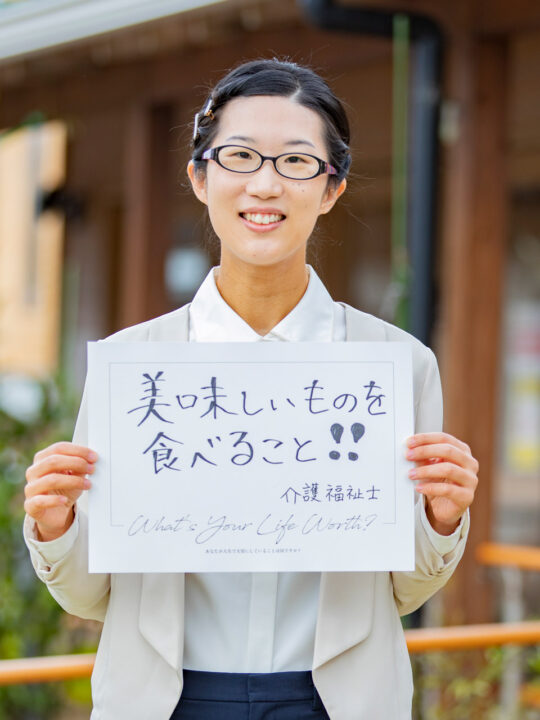 美味しいものを
食べること!!
介護福祉士
What's Your Life Worth?
あなたが人生で大切にしていることは何ですか？